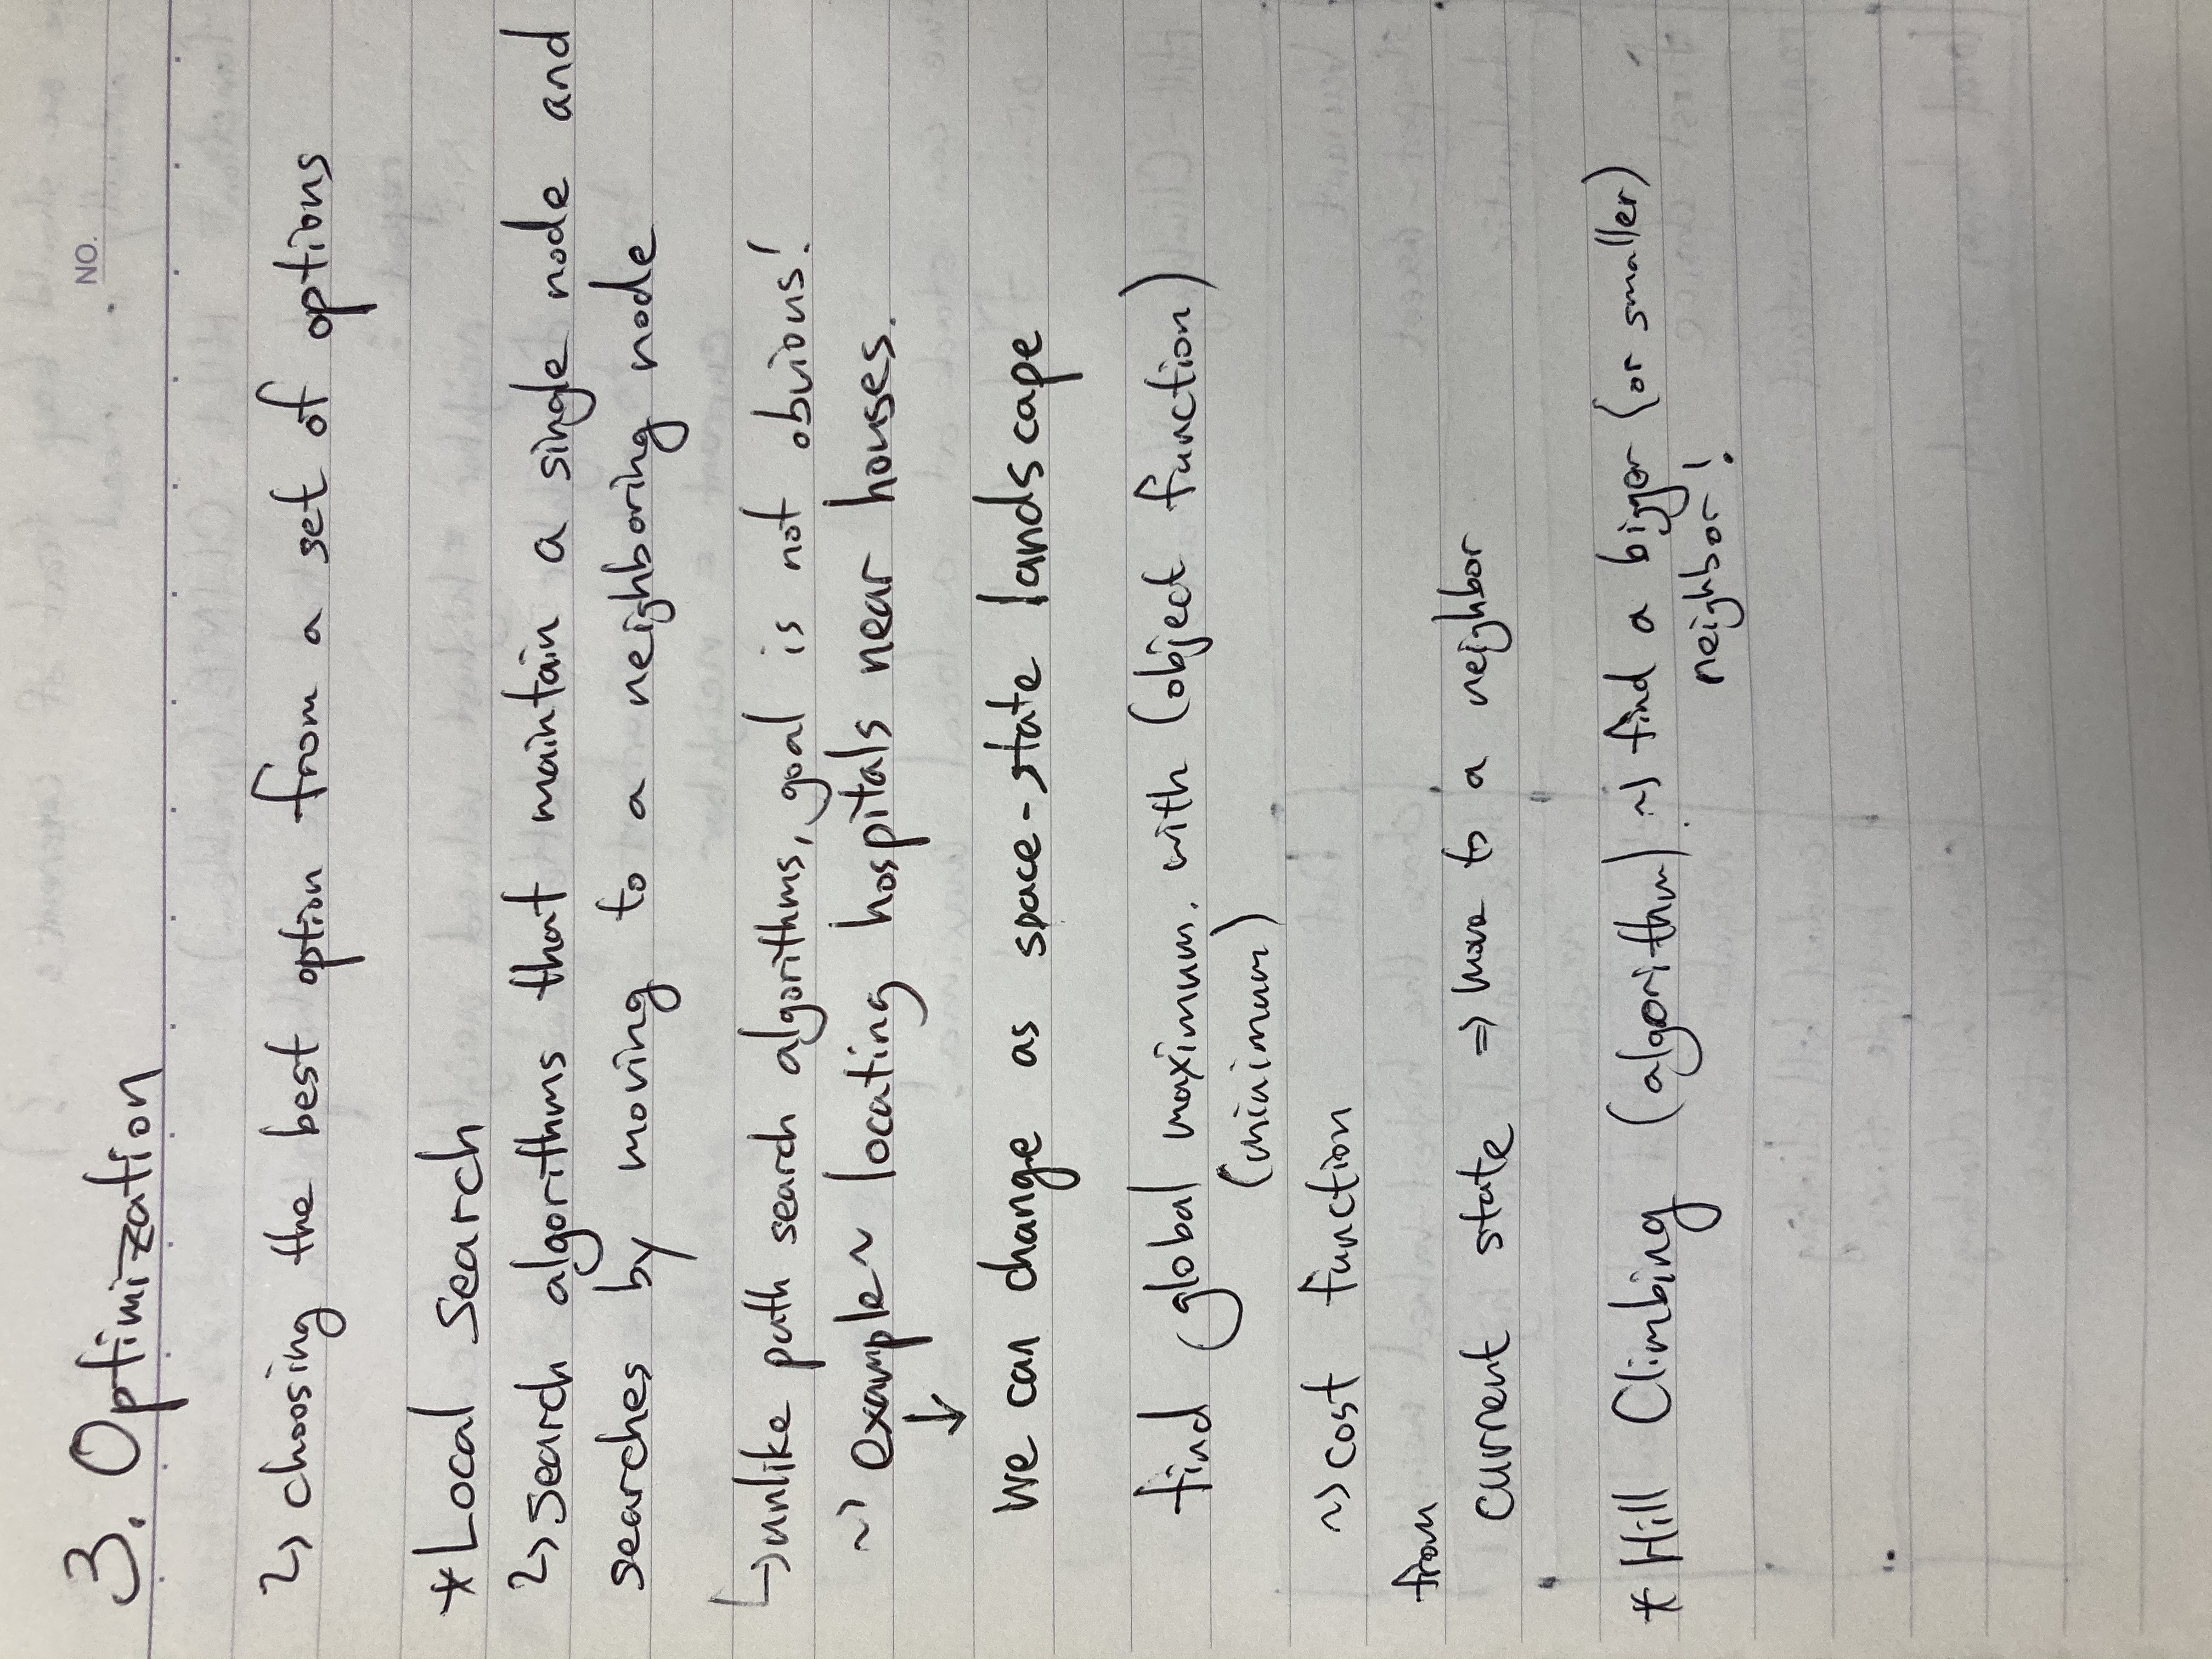 NO.
3. Optimization
↳ choosing the best option from a set of options
*Local search
↳ search algorithms that maintain a single node and
searches by moving to a neighboring node
↳ unlike path search algorithms, goal is not obvious!
~> example ~ locating hospitals near houses.
↓
we can change as space-state landscape
find global maximum. with (object function)
(minimum)
~> cost function
from
current state ⇒ move to a neighbor
* Hill Climbing (algorithm). ~> find a bigger (or smaller)
neighbor!